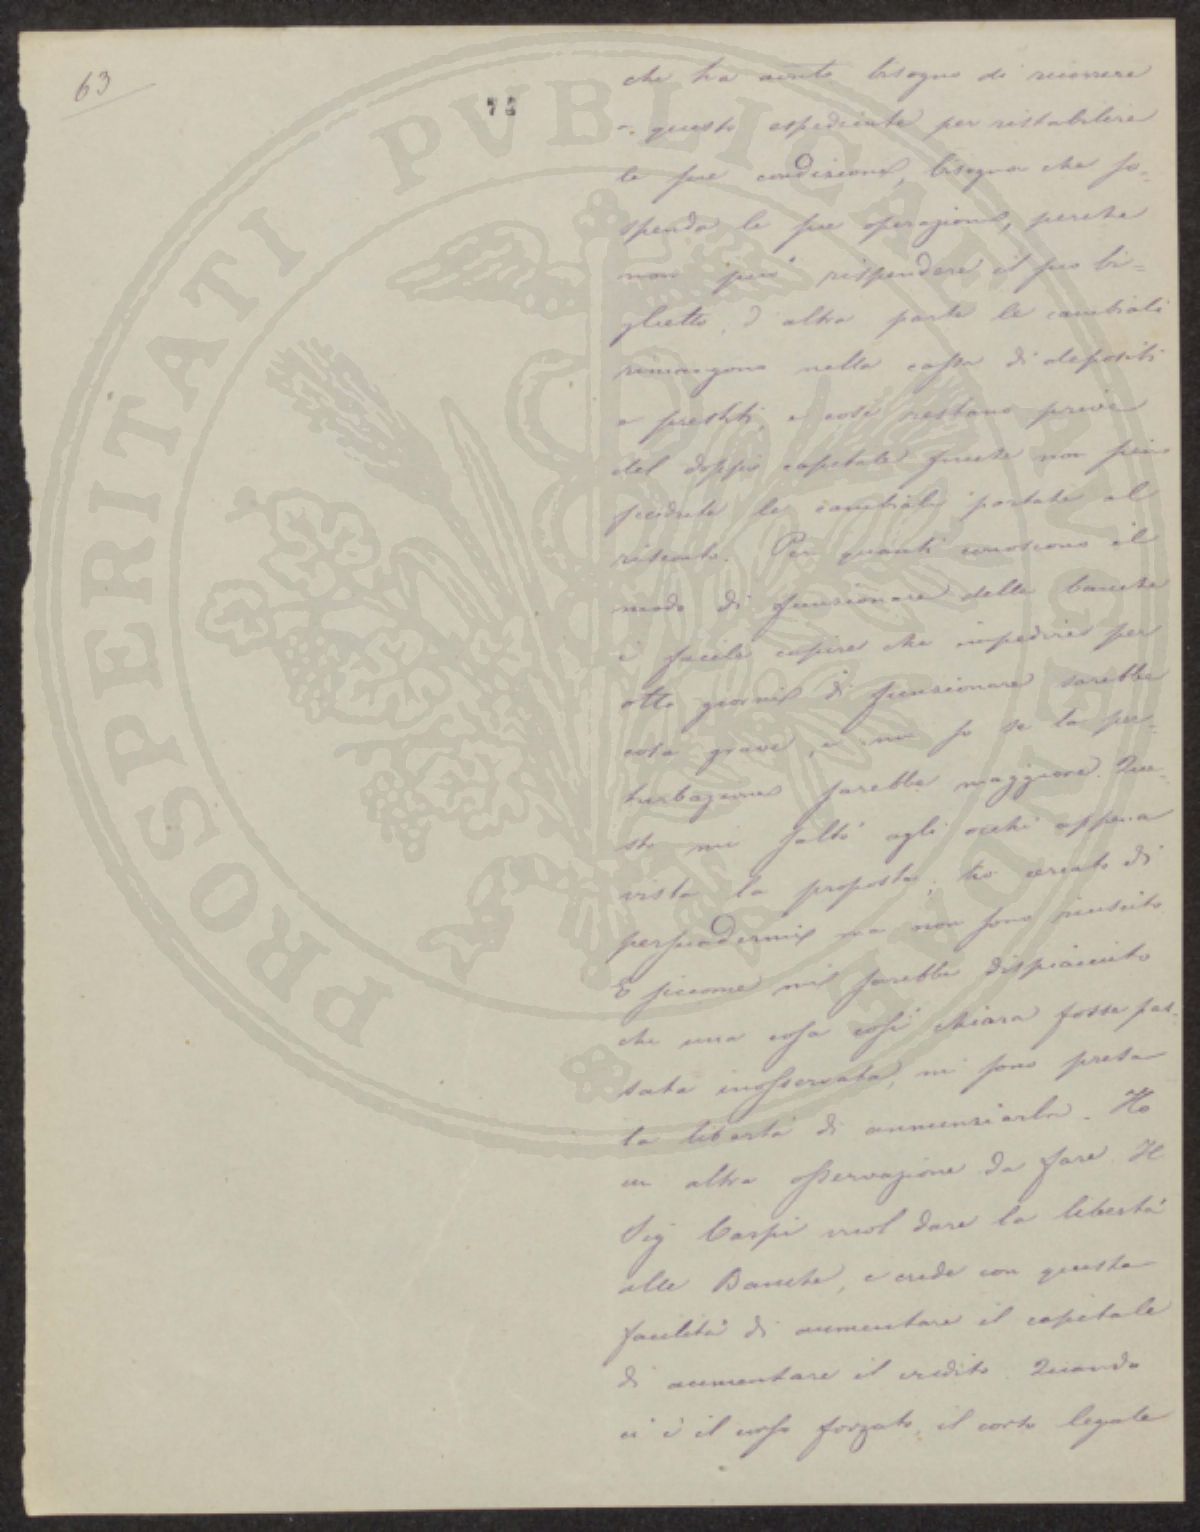 63
75
PROSPERITATI PVBLICAE
che ha avuto bisogno di ricorrere
a questo espediente per ristabilire
le sue condizioni, bisogna che so-
spenda le sue operazioni, perche
non può rispendere il suo bi=
glietto, d'altra parte le cambiali
rimangono nella cassa di depositi
e prestiti, e così restano privi
del doppio capitale finche non siano
scadute le cambiali portate al
risconto. Per quanti conoscono il
modo di funzionare delle banche
è facile capire che impedire per
otto giorni di funzionare sarebbe
cosa grave, e non so se la per-
turbazione sarebbe maggiore. Que-
sto mi saltò agli occhi appena
vista la proposta, ho cercato di
persuadermi ma non sono riuscito
E siccome mi sarebbe dispiaciuto
che una cosa così chiara fosse pas-
sata inosservata, mi sono presa
la libertà di annunziarla. Ho
un altra osservazione da fare. Il
Sig vuol dare la libertà
alle Banche, e crede con questa
facilità di aumentare il capitale
di aumentare il credito. Quando
ci è il corso forzato, il corso legale